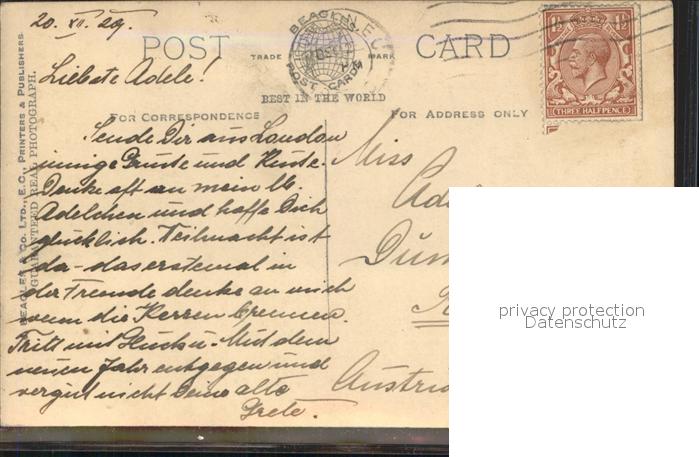 20. XII. 29.
POST CARD
TRADE MARK
BEAGLES
POST CARDS
BEST IN THE WORLD
THREE HALFPENCE
BEAGLES & CO. LTD., E.C., PRINTERS & PUBLISHERS.
GUARANTEED REAL PHOTOGRAPH.
Liebste Adele!
FOR CORRESPONDENCE
FOR ADDRESS ONLY
Sende Dir aus London
innige Grüße und Küsse.
Denke oft an mein lb.
Adelchen und hoffe Dich
glücklich. Weihnacht ist
da – das erstemal in
der Fremde denke an mich
wenn die Kerzen brennen.
Tritt mit Glück u. Mut dem
neuen Jahr entgegen und
vergiß nicht Deine alte
Grete.
Miss
Austria
privacy protection
Datenschutz